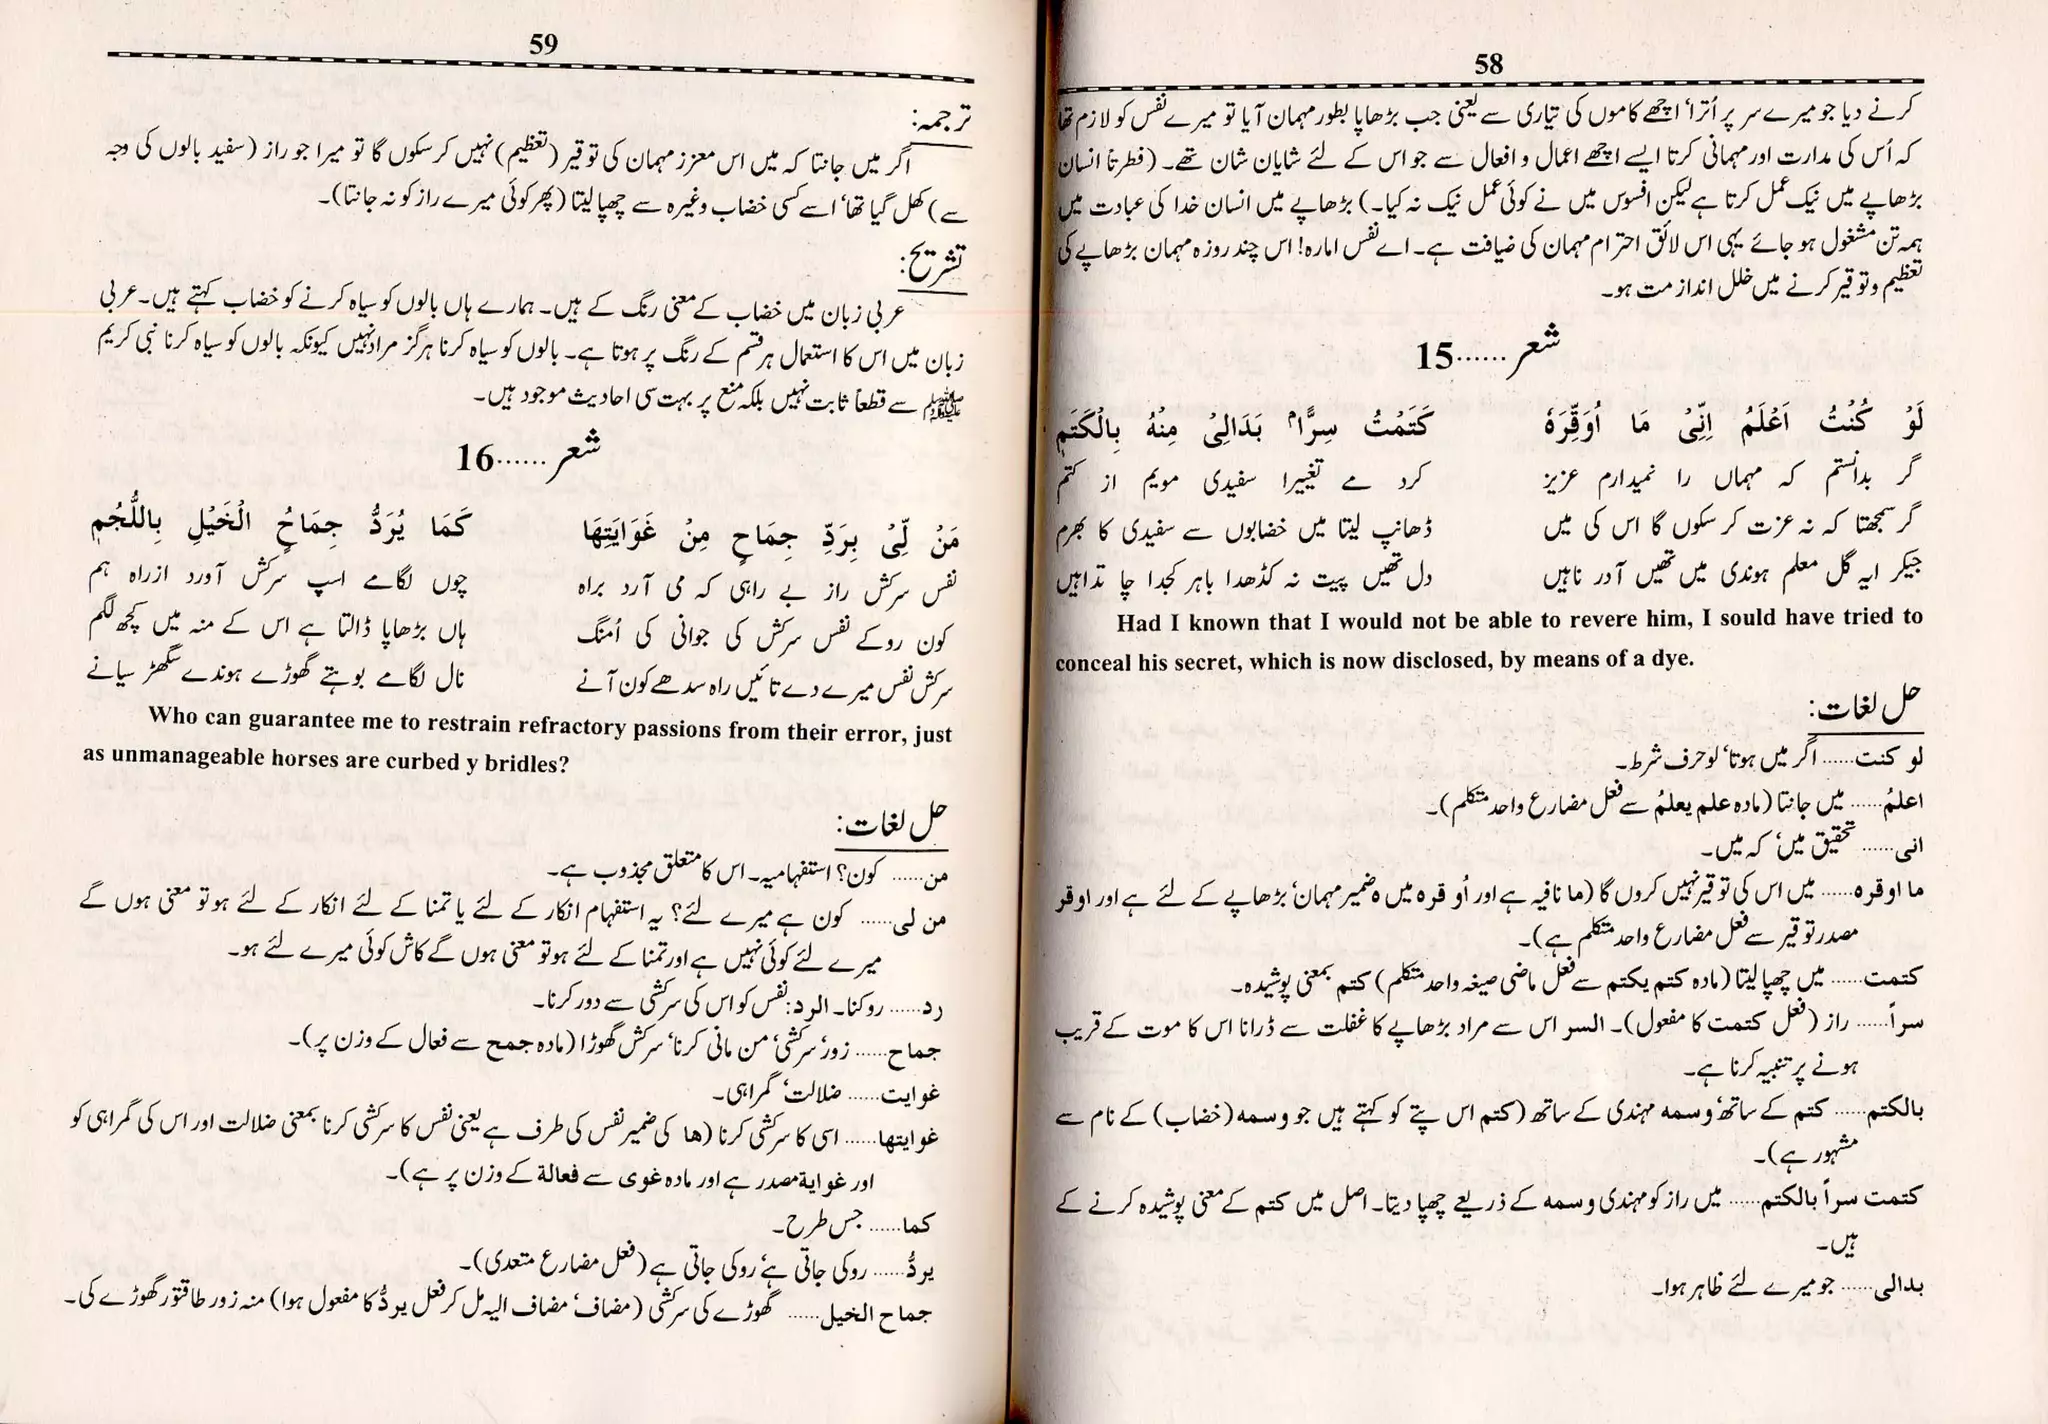 58
کرنے دیا جو میرے سر پر اُترا، اچھے کاموں کی تیاری سے یعنی جب بڑھاپا بطور مہمان آیا تو میرے نفس کو لازم تھا
کہ اُس کی مدارت اور مہمانی کرتا ایسے اچھے اعمال و افعال سے جو اس کے لئے شایان شان تھے۔ (فطرتاً انسان
بڑھاپے میں نیک عمل کرتا ہے لیکن افسوس میں نے کوئی عمل نیک نہ کیا۔) بڑھاپے میں انسان خدا کی عبادت میں
ہمہ تن مشغول ہو جائے یہی اس لائق احترام مہمان کی ضیافت ہے۔ اے نفس امارہ! اس چند روزہ مہمان بڑھاپے کی
تعظیم و توقیر کرنے میں خلل انداز مت ہو۔
شعر......15
لَوْ كُنْتُ اَعْلَمُ اِنِّیْ مَا اُوَقِّرَهٗ كَتَمْتُ سِرًّا بَدَالِیْ مِنْهُ بِالْكَتَمِ
گر بدانستم کہ مہماں را نمیدارم عزیز کرد مے تغییرا سفیدی مویم از کتم
گر سمجھتا کہ نہ عزت کر سکوں گا اس کی میں ڈھانپ لیتا میں خضابوں سے سفیدی کا بھرم
جیکر ایہ گل معلم ہوندی میں تھیں آدر ناہیں دل تھیں پیت نہ کڈھدا باہر کجدا چا تداہیں
Had I known that I would not be able to revere him, I sould have tried to
conceal his secret, which is now disclosed, by means of a dye.
حل لغات:
لو کنت...... اگر میں ہوتا، لو حرف شرط۔
اعلمُ...... میں جانتا (مادہ علم یعلمُ سے فعل مضارع واحد متکلم)۔
انی...... تحقیق میں، کہ میں۔
ما اوقرہ...... میں اس کی توقیر نہیں کروں گا (ما نافیہ ہے اور اُو قرہ میں ہ ضمیر مہمان، بڑھاپے کے لئے ہے اور اوقر
مصدر توقیر سے فعل مضارع واحد متکلم ہے)۔
کتمت...... میں چھپا لیتا (مادہ کتم یکتم سے فعل ماضی صیغہ واحد متکلم) کتم بمعنی پوشیدہ۔
سراً...... راز (فعل کتمت کا مفعول)۔ السر اس سے مراد بڑھاپے کا غفلت سے ڈرانا اس کا موت کے قریب
ہونے پر تنبیہ کرنا ہے۔
بالکتم...... کتم کے ساتھ، وسمہ مہندی کے ساتھ (کتم اس پتے کو کہتے ہیں جو وسمہ (خضاب) کے نام سے
مشہور ہے)۔
کتمت سراً بالکتم...... میں راز کو مہندی وسمہ کے ذریعے چھپا دیتا۔ اصل میں کتم کے معنی پوشیدہ کرنے کے
ہیں۔
بدالی...... جو میرے لئے ظاہر ہوا۔
59
ترجمہ:
اگر میں جانتا کہ میں اس معزز مہمان کی توقیر (تعظیم) نہیں کر سکوں گا تو میرا جو راز (سفید بالوں کی وجہ
سے) کھل گیا تھا، اسے کسی خضاب وغیرہ سے چھپا لیتا (پھر کوئی میرے راز کو نہ جانتا)۔
تشریح:
عربی زبان میں خضاب کے معنی رنگ کے ہیں۔ ہمارے ہاں بالوں کو سیاہ کرنے کو خضاب کہتے ہیں۔ عربی
زبان میں اس کا استعمال ہر قسم کے رنگ پر ہوتا ہے۔ بالوں کو سیاہ کرنا ہرگز مراد نہیں کیونکہ بالوں کو سیاہ کرنا نبی کریم
ﷺ سے قطعاً ثابت نہیں بلکہ منع پر بہت سی احادیث موجود ہیں۔
شعر......16
مَنْ لِّیْ بِرَدِّ جِمَاحٍ مِنْ غَوَايَتِهَا كَمَا يُرَدُّ جِمَاحُ الْخَيْلِ بِاللُّجُمِ
نفس سرکش راز بے راہی کہ می آرد براہ چوں لگامے اسپ سرکش آورد ازراہ ہم
کون روکے نفس سرکش کی جوانی کی اُمنگ ہاں بڑھاپا ڈالتا ہے اس کے منہ میں کچھ لگم
سرکش نفس میرے دے تائیں راہ سدھے کون آنے نال لگامے بوہتے گھوڑے ہوندے سگھڑ سیانے
Who can guarantee me to restrain refractory passions from their error, just
as unmanageable horses are curbed y bridles?
حل لغات:
من...... کون؟ استفہامیہ۔ اس کا متعلق مجذوب ہے۔
من لی...... کون ہے میرے لئے؟ یہ استفہام انکار کے لئے یا تمنا کے لئے انکار کے لئے ہو تو معنی ہوں گے
میرے لئے کوئی نہیں ہے اور تمنا کے لئے ہو تو معنی ہوں گے کاش کوئی میرے لئے ہو۔
رد...... روکنا۔ الرد: نفس کو اس کی سرکشی سے دور کرنا۔
جماح...... زور، سرکشی، من مانی کرنا، سرکش گھوڑا (مادہ جمح سے فعال کے وزن پر)۔
غوایت...... ضلالت، گمراہی۔
غوایتھا...... اسی کا سرکشی کرنا (ھا کی ضمیر نفس کی طرف ہے یعنی نفس کا سرکشی کرنا بمعنی ضلالت اور اس کی گمراہی کو
اور غوایة مصدر ہے اور مادہ غوی سے فعالة کے وزن پر ہے)۔
کما...... جس طرح۔
یردُّ...... روکی جاتی ہے، روکی جاتی ہے (فعل مضارع متعدی)۔
جماح الخیل...... گھوڑے کی سرکشی (مضاف، مضاف الیہ مل کر فعل یردُّ کا مفعول ہوا) منہ زور طاقتور گھوڑے کی۔